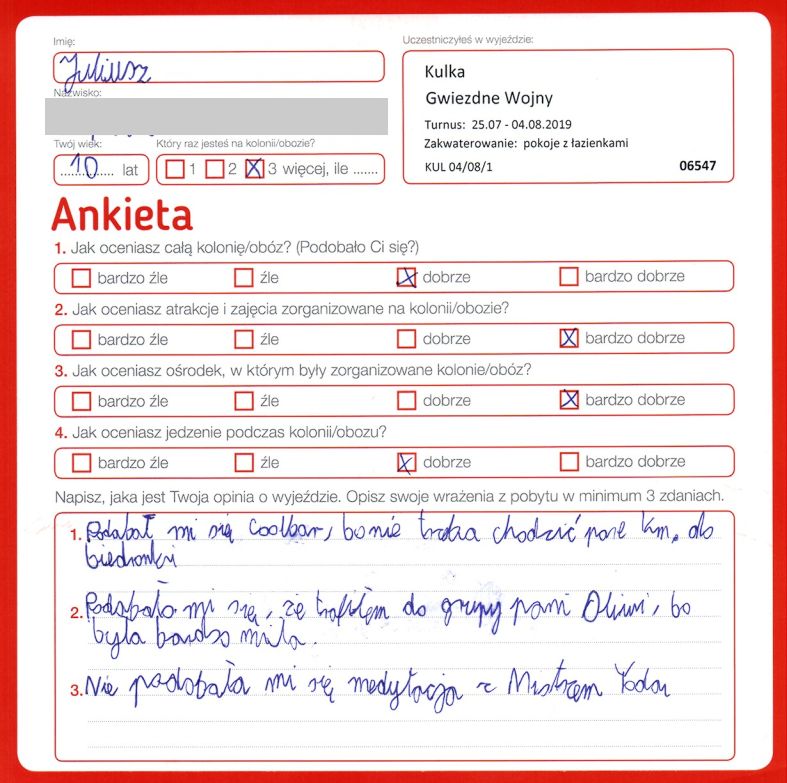 Imię:
Juliusz
Nazwisko:
Twój wiek:
10 lat
Który raz jesteś na kolonii/obozie?
1 2 3 więcej, ile .......
Uczestniczyłeś w wyjeździe:
Kulka
Gwiezdne Wojny
Turnus: 25.07 - 04.08.2019
Zakwaterowanie: pokoje z łazienkami
KUL 04/08/1 06547
Ankieta
1. Jak oceniasz całą kolonię/obóz? (Podobało Ci się?)
bardzo źle źle dobrze bardzo dobrze
2. Jak oceniasz atrakcje i zajęcia zorganizowane na kolonii/obozie?
bardzo źle źle dobrze bardzo dobrze
3. Jak oceniasz ośrodek, w którym były zorganizowane kolonie/obóz?
bardzo źle źle dobrze bardzo dobrze
4. Jak oceniasz jedzenie podczas kolonii/obozu?
bardzo źle źle dobrze bardzo dobrze
Napisz, jaka jest Twoja opinia o wyjeździe. Opisz swoje wrażenia z pobytu w minimum 3 zdaniach.
1. Podobał mi się coolbar, bo nie trzeba chodzić pare km. do
biedronki
2. Podobało mi się, że trafiłem do grupy pani Oliwi, bo
była bardzo miła.
3. Nie podobała mi się medytacja z Mistrzem Yoda